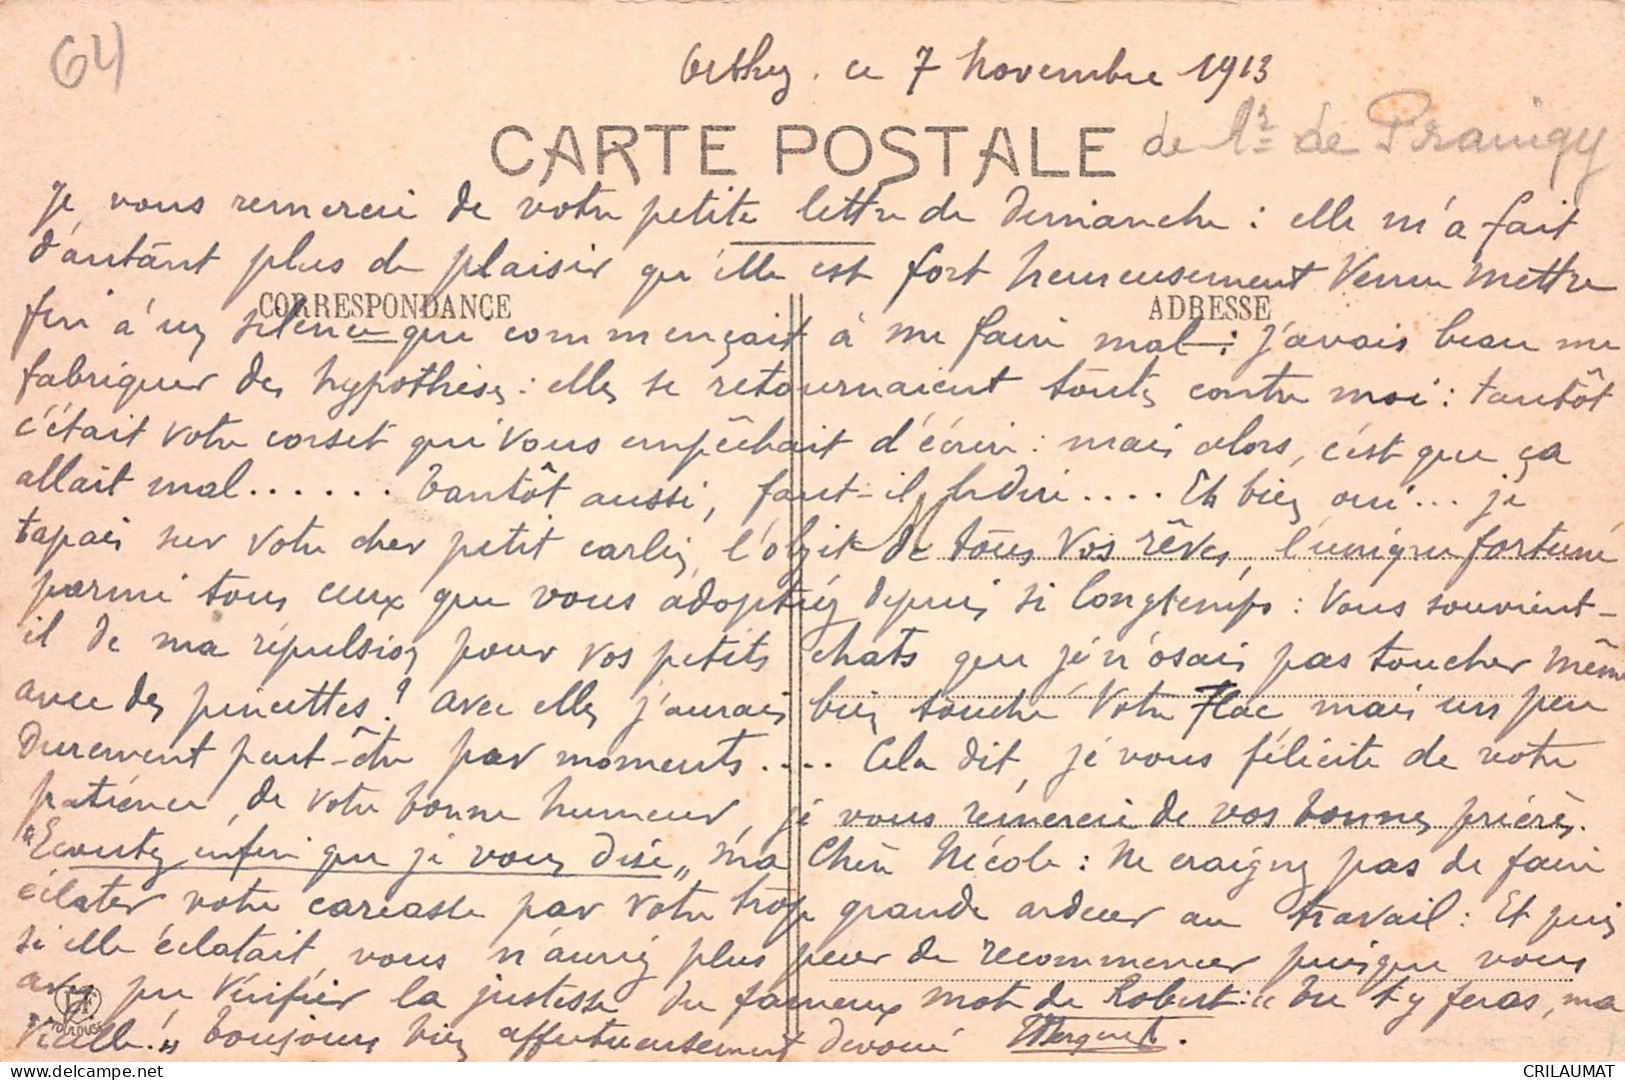 64
Orthez, ce 7 novembre 1913
CARTE POSTALE
de Mr de
je vous remercie de votre petite lettre de dimanche : elle m'a fait
d'autant plus de plaisir qu'elle est fort heureusement venue mettre
CORRESPONDANCE
ADRESSE
fin à un silence que commençait à me faire mal : j'avais beau me
fabriquer des hypothèses : elles se retournaient toutes contre moi : tantôt
c'était votre corset qui vous empêchait d'écrire : mais alors, c'est que ça
allait mal...... Tantôt aussi, faut-il le dire.... Eh bien oui... je
tapais sur votre cher petit carlin, l'objet de tous vos rêves, l'unique fortuné
parmi tous ceux que vous adoptiez depuis si longtemps : Vous souvient-
il de ma répulsion pour vos petits chats que je n'osais pas toucher même
avec des pincettes ? avec elles j'aurais bien touché votre Flac, mais un peu
durement peut-être par moments.... Cela dit, je vous félicite de votre
patience, de votre bonne humeur, je vous remercie de vos bonnes prières.
"Ecoutez enfin que je vous dise" ma chère Nicole : Ne craignez pas de faire
éclater votre carcasse par votre trop grande ardeur au travail : Et puis
si elle éclatait, vous n'auriez plus peur de recommencer puisque vous
avez pu vérifier la justesse du fameux mot de Robert : "tu t'y feras, ma
vieille !" Toujours bien affectueusement dévoué
CRILAUMAT